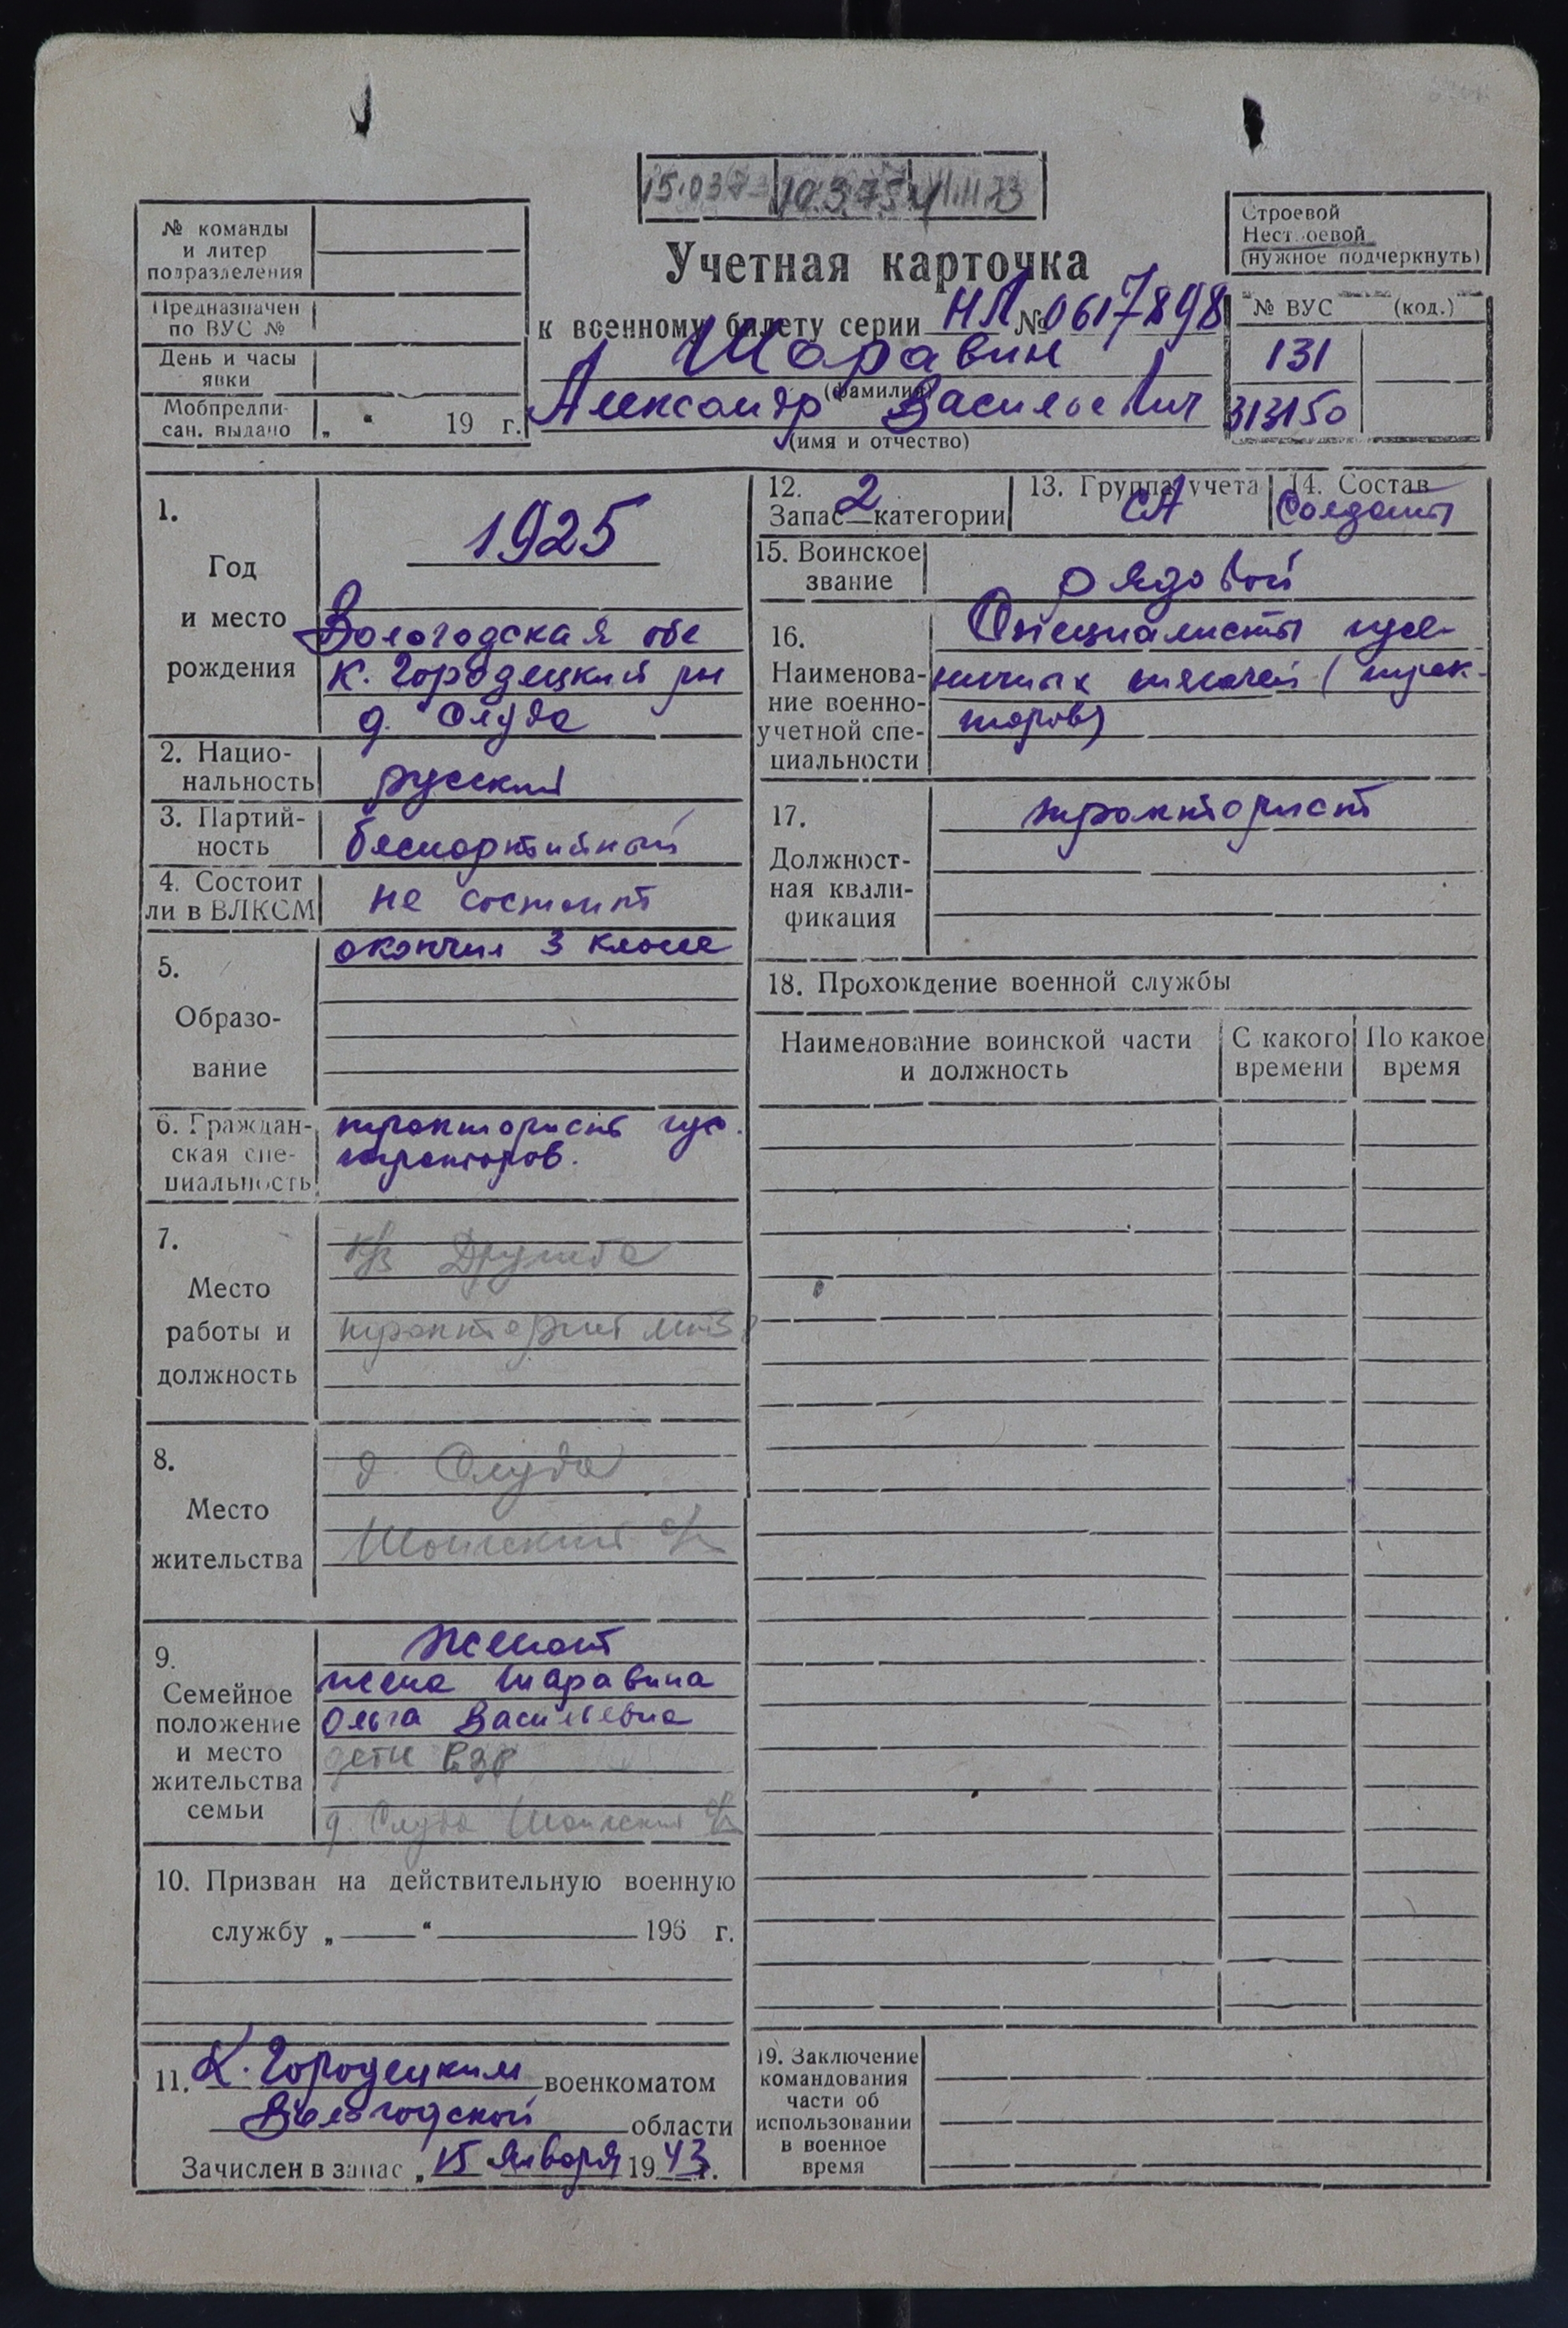 № команды
и литер
подразделения
Предназначен
по ВУС №
День и часы
явки
Мобпредпи-
сан. выдано „ “ 19 г.
15.03.73
Учетная карточка
к военному билету серии НЛ № 0617898
Шаравин
(фамилия)
Александр Васильевич
(имя и отчество)
Строевой
Нестроевой
(нужное подчеркнуть)
№ ВУС (код.)
131
313150
1.
Год
и место
рождения
1925
Вологодская обл
К. Городецкий рн
д. Слуда
2. Нацио-
нальность русский
3. Партий-
ность беспартийный
4. Состоит
ли в ВЛКСМ не состоит
5.
Образо-
вание
окончил 3 класса
6. Граждан-
ская спе-
циальность
тракторист гус.
тракторов.
7.
Место
работы и
должность
к/з Дружба
тракторист
8.
Место
жительства
д. Слуда
Шонгский с/с
9.
Семейное
положение
и место
жительства
семьи
женат
жена Шаравина
Ольга Васильевна
дети взр
д. Слуда Шонгский с/с
10. Призван на действительную военную
службу „ “ 196 г.
11. К. Городецким военкоматом
Вологодской области
Зачислен в запас „ 15 января 1943 г.
12. 2
Запас категории
13. Группа учета
СА
14. Состав
Солдаты
15. Воинское
звание рядовой
16.
Наименова-
ние военно-
учетной спе-
циальности
Специалисты гусе-
ничных тягачей (трак-
торов)
17.
Должност-
ная квали-
фикация
тракторист
18. Прохождение военной службы
Наименование воинской части
и должность
С какого
времени
По какое
время
19. Заключение
командования
части об
использовании
в военное
время